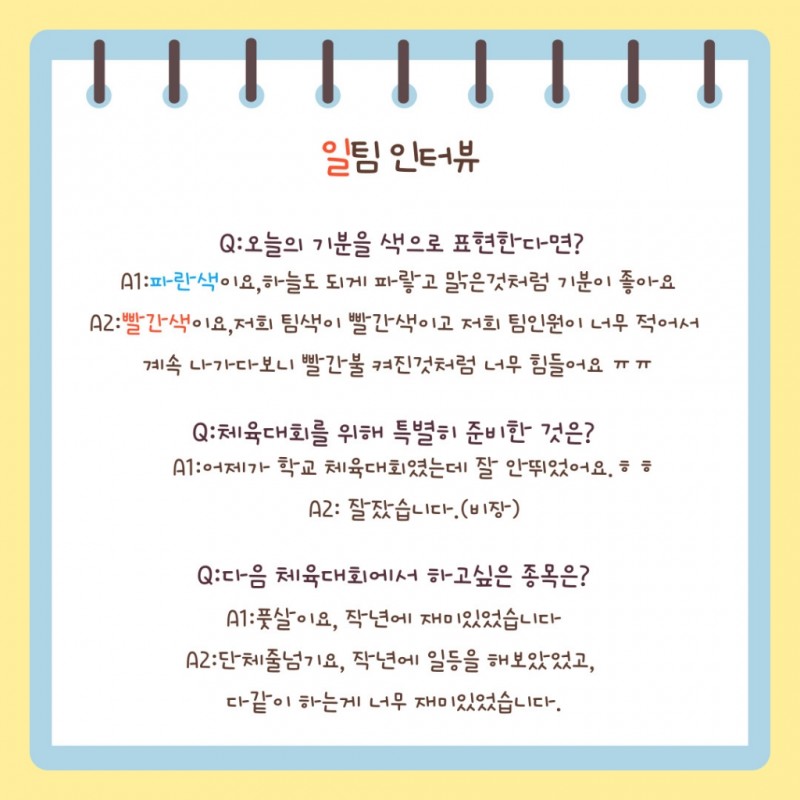 일팀 인터뷰
Q:오늘의 기분을 색으로 표현한다면?
A1:파란색이요,하늘도 되게 파랗고 맑은것처럼 기분이 좋아요
A2:빨간색이요,저희 팀색이 빨간색이고 저희 팀인원이 너무 적어서
계속 나가다보니 빨간불 켜진것처럼 너무 힘들어요 ㅠㅠ
Q:체육대회를 위해 특별히 준비한 것은?
A1:어제가 학교 체육대회였는데 잘 안뛰었어요.ㅎㅎ
A2: 잘잤습니다.(비장)
Q:다음 체육대회에서 하고싶은 종목은?
A1:풋살이요, 작년에 재미있었습니다
A2:단체줄넘기요, 작년에 일등을 해보았었고,
다같이 하는게 너무 재미있었습니다.